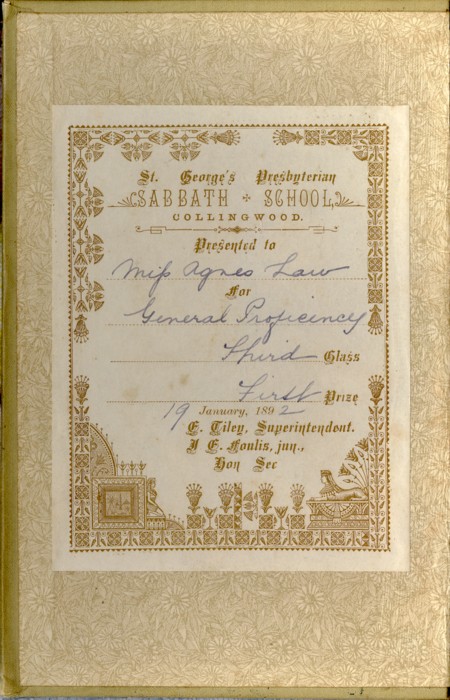 St. George's Presbyterian
SABBATH SCHOOL,
COLLINGWOOD.
Presented to
Miss Agnes Law
For
General Proficiency
Third Class
First Prize
19 January, 1892
E. Tiley, Superintendent.
J E. Foulis, jun.,
Hon Sec